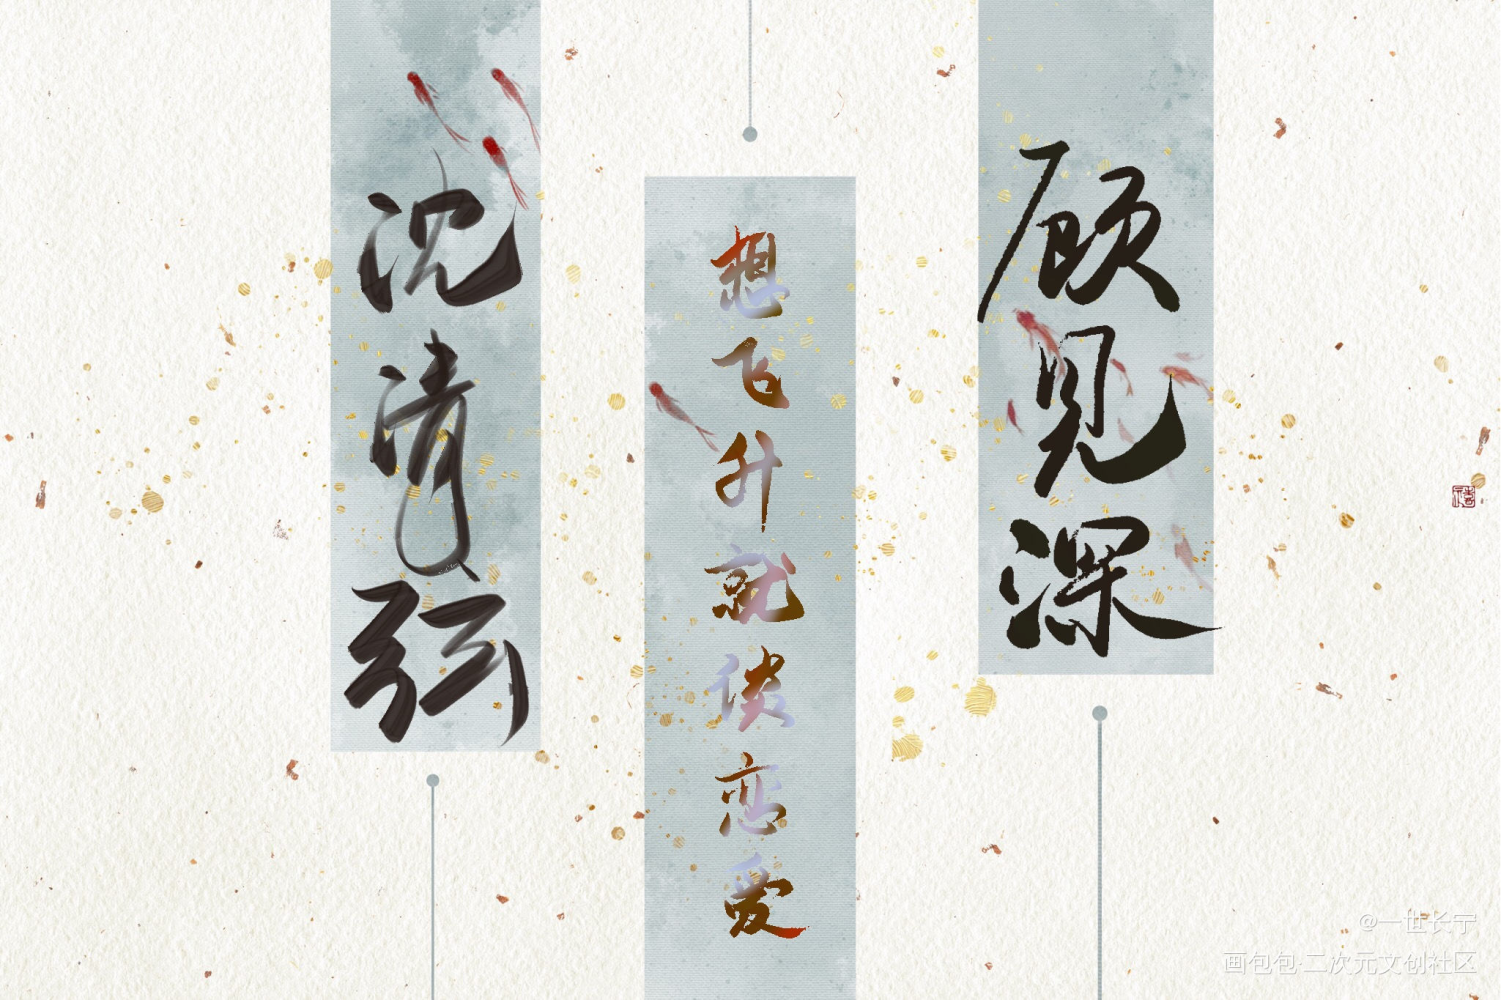 沈清弦
想飞升就谈恋爱
顾见深
@一世长宁
画包包·二次元文创社区